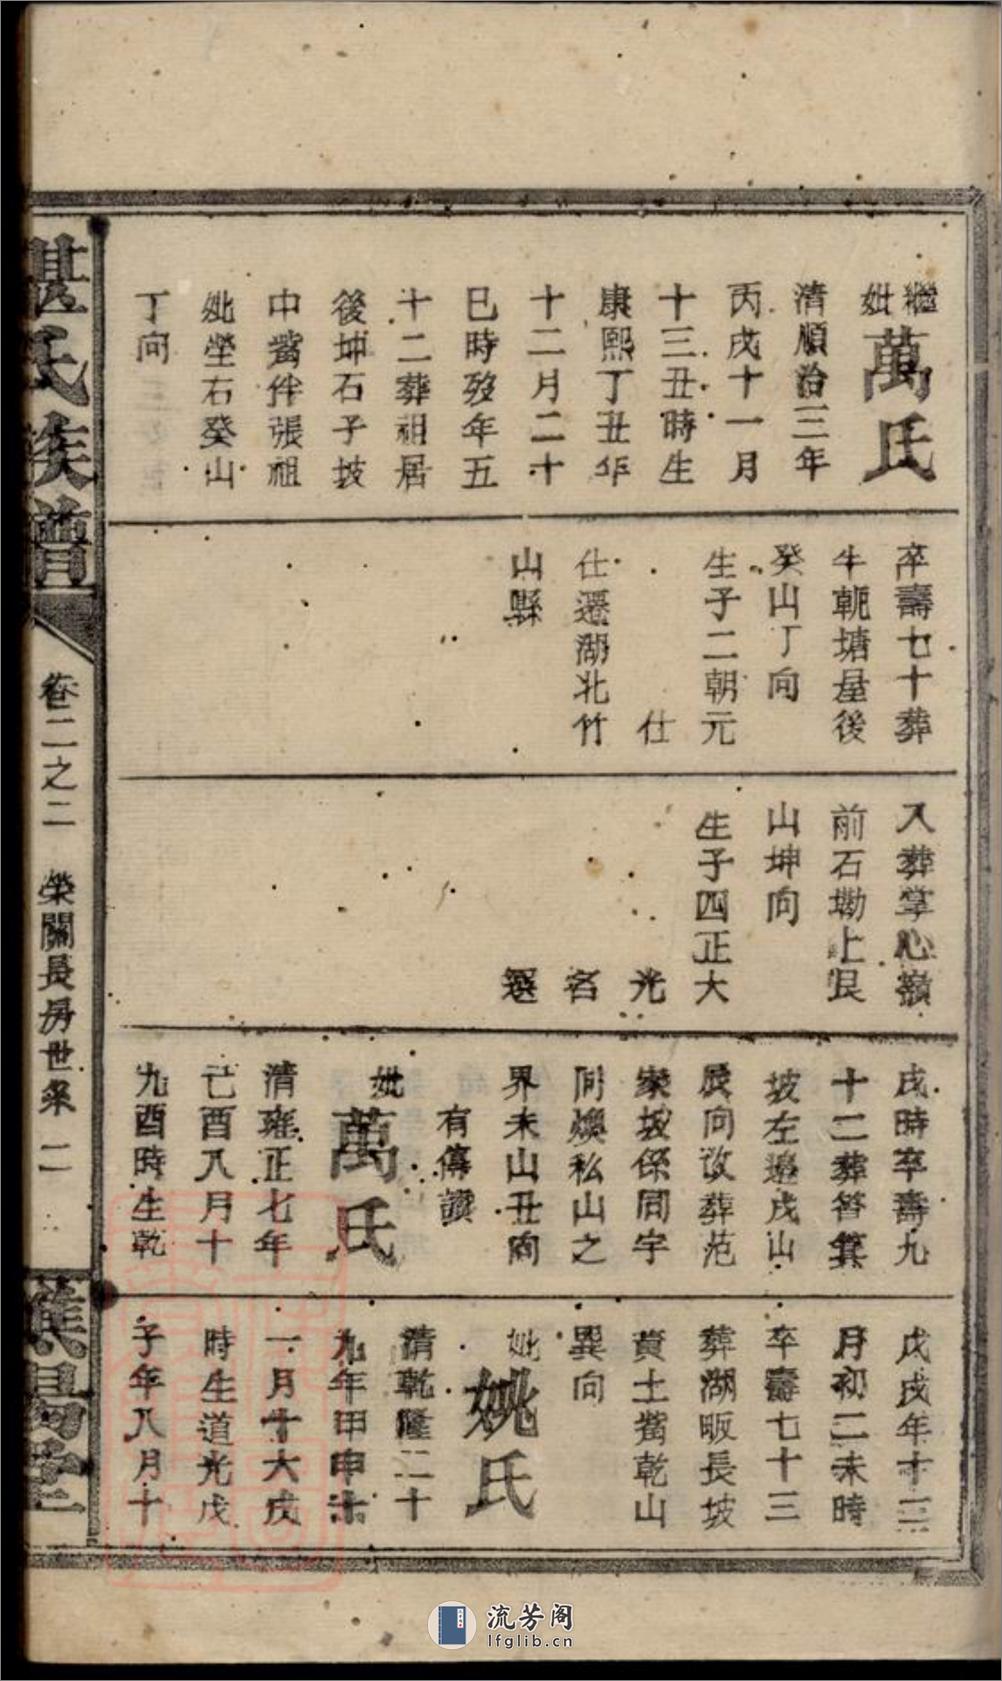 繼妣萬氏
清順治三年
丙戌十一月
十三丑時生
康熙丁丑年
十二月二十
巳時歿年五
十二葬祖居
後坤石子坡
中嘴伴張祖
妣塋右癸山
丁向
卒壽七十葬
牛軛塘屋後
癸山丁向
生子二朝元
仕
仕遷湖北竹
山縣
入葬掌心嶺
前石坳上艮
山坤向
生子四正大
光
名
選
戌時卒壽九
十二葬筲箕
坡左邊戌山
辰向改葬范
家坡係同宇
同煥私山之
界未山丑向
有傳讚
妣萬氏
清雍正七年
己酉八月十
九酉時生乾
戊戌年十二
月初二未時
卒壽七十三
葬湖畈長坡
黃土嘴乾山
巽向
妣姚氏
清乾隆二十
九年甲申十
一月十六戌
時生道光戊
子年八月十
湛氏族譜
卷二之二 榮關長房世系 二
流芳阁
lfglib.cn